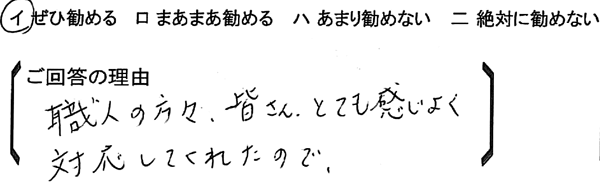 イ ぜひ勧める ロ まあまあ勧める ハ あまり勧めない ニ 絶対に勧めない
ご回答の理由
職人の方々、皆さん、とても感じよく
対応してくれたので、